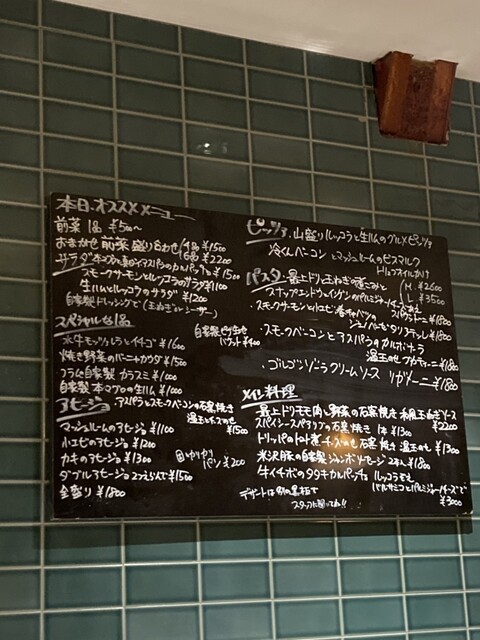 本日のオススメメニュー
前菜 1品 ¥500〜
おまかせ 前菜 盛り合わせ 4品 ¥1500
6品 ¥2200
サラダ アスパラのカルパッチョ ¥1500
スモークサーモンとルッコラのサラダ ¥1500
生ハムとルッコラのサラダ ¥1200
自家製ドレッシングで(玉ねぎorシーザー)
スペシャルな1品
水牛モッツァレラとイチゴ ¥1600
自家製 ¥400
焼き野菜のバーニャカウダ ¥1500
自家製 カラスミ ¥1000
自家製 生ハム ¥1000
アヒージョ アスパラとスモークベーコンの石窯焼き
温玉とチーズのせ ¥1500
マッシュルームのアヒージョ ¥1100
小エビのアヒージョ ¥1200
カキのアヒージョ ¥1300
パン ¥200
ダブルアヒージョ 2つえらんで ¥1500
全盛り ¥1800
ピッツァ 山盛りルッコラと生ハムのグルメピッツァ
ベーコンとマッシュルームのビスマルク
M. ¥2600
L. ¥3500
パスタ
スナップエンドウ
¥1800
スモークサーモンと小エビ 春キャベツの
ジェノベーゼ タリアテッレ ¥1800
・スモークベーコンとアスパラのカルボナーラ
温玉のせ ¥1800
・ゴルゴンゾーラクリームソース リガトーニ ¥1800
メイン料理
最上ドリモモ肉と野菜の石窯焼き 和風玉ねぎソース
¥2200
スパイシースペアリブの石窯焼き 1本 ¥1300
トリッパのトマト煮 チーズのせ 石窯焼き 温玉のせ ¥1300
米沢豚の自家製ジャンボソーセージ 2本入 ¥1800
牛イチボのタタキカルパッチョ ルッコラ
バルサミコとパルミジャーノチーズで
¥3000
デザートは別の黒板で
スタッフに聞いてね!!